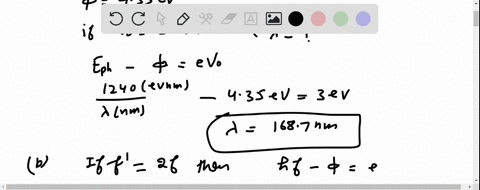 Φ = 4.35 eV
if
Eph − Φ = eV₀
1240 (eV nm) / λ (nm) − 4.35 eV = 3 eV
λ = 168.7 nm
(b) If f' = 2f then hf − Φ = e